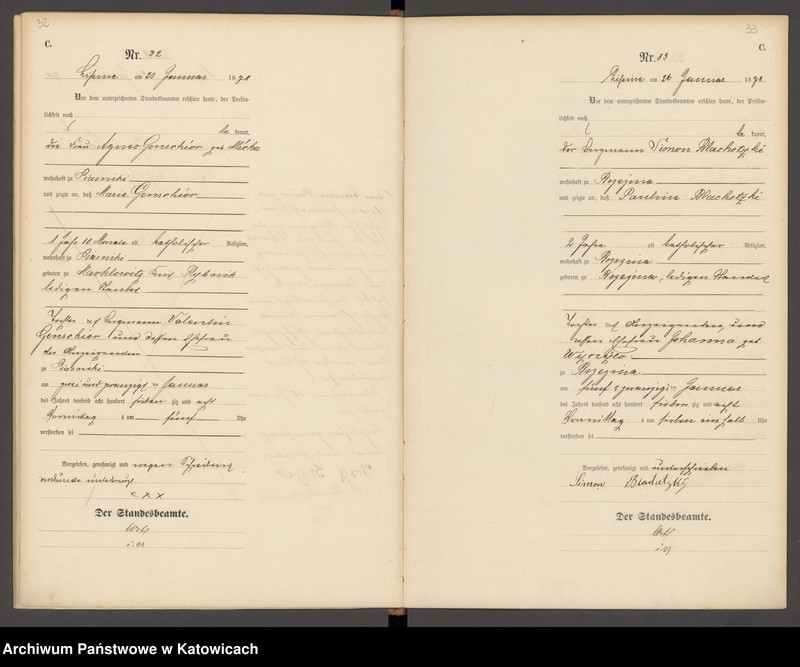 32
C.
Nr. 32
Lipine am 23 Januar 1878
Vor dem unterzeichneten Standesbeamten erschien heute, der Persön-
lichkeit nach
be kannt,
die Frau Agnes Gonschior geb
wohnhaft zu Piasniki
und zeigte an, daß Marie Gonschior
1 Jahr 10 Monate alt katholischer Religion,
wohnhaft zu Piasniki
geboren zu Marklowitz Kreis Rybnik
ledigen Standes
Tochter des Bergmann Valentin
Gonschior und dessen Ehefrau
der Anzeigenden
zu Piasniki
am zwei und zwanzigsten Januar
des Jahres tausend acht hundert sieben zig und acht
Vormittag s um fünf Uhr
verstorben sei
Vorgelesen, genehmigt und wegen Schreibens
xxx
Der Standesbeamte.
33
C.
Nr. 33
Lipine am 26 Januar 1878
Vor dem unterzeichneten Standesbeamten erschien heute, der Persön-
lichkeit nach
be kannt,
der Bergmann Simon Blachetzki
wohnhaft zu
und zeigte an, daß Paulina Blachetzki
2 Jahre alt katholischer Religion,
wohnhaft zu
geboren zu ledigen Standes
Tochter des Anzeigenden und
dessen Ehefrau Johanna geb
zu
am fünf & zwanzigsten Januar
des Jahres tausend acht hundert sieben zig und acht
Vormittag s um sieben ein halb Uhr
verstorben sei
Vorgelesen, genehmigt und unterschrieben
Simon
Der Standesbeamte.
Archiwum Państwowe w Katowicach